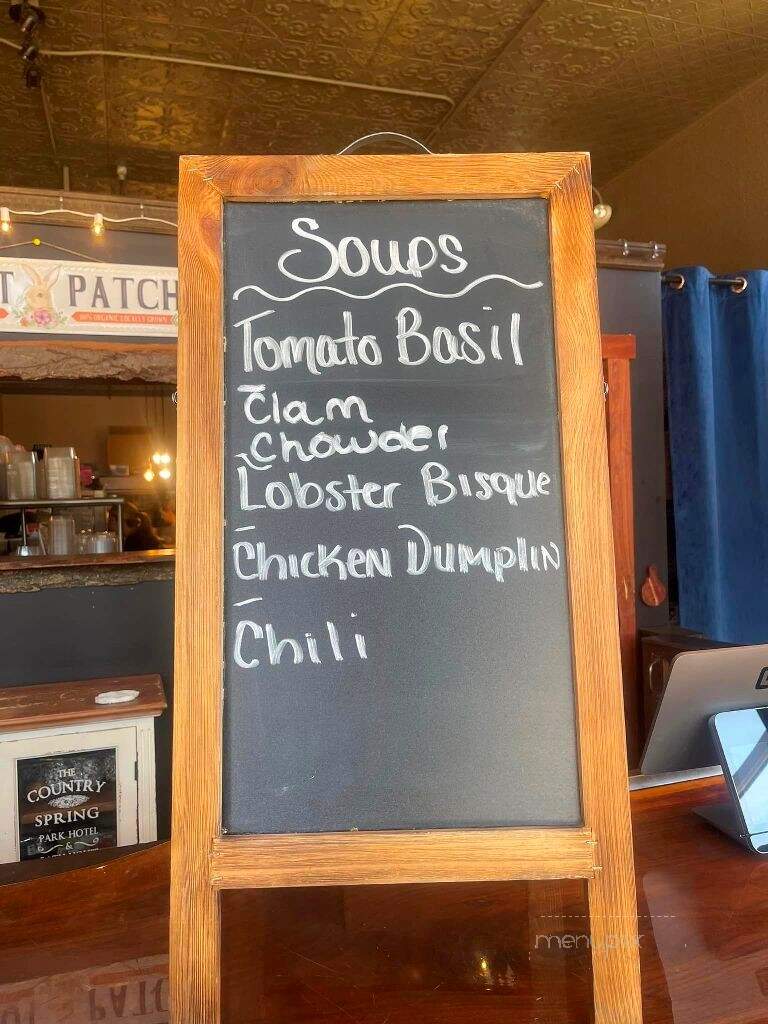 Soups
Tomato Basil
Clam
Chowder
Lobster Bisque
Chicken Dumplin
Chili
T PATCH
100% ORGANIC LOCALLY GROWN
THE
COUNTRY
SPRING
PARK HOTEL
&
menupix